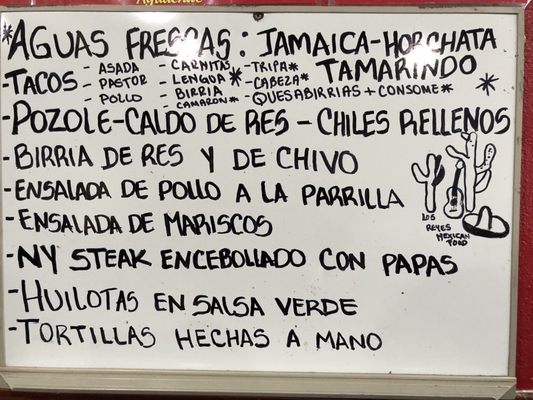 *AGUAS FRESCAS: JAMAICA-HORCHATA
TAMARINDO
-TACOS - ASADA - CARNITAS - TRIPA*
- PASTOR - LENGUA* - CABEZA*
- POLLO - BIRRIA - QUESABIRRIAS + CONSOME*
- CAMARON*
*
-POZOLE-CALDO DE RES - CHILES RELLENOS
-BIRRIA DE RES Y DE CHIVO
-ENSALADA DE POLLO A LA PARRILLA
-ENSALADA DE MARISCOS
-NY STEAK ENCEBOLLADO CON PAPAS
-HUILOTAS EN SALSA VERDE
-TORTILLAS HECHAS A MANO
LOS
REYES
MEXICAN
FOOD